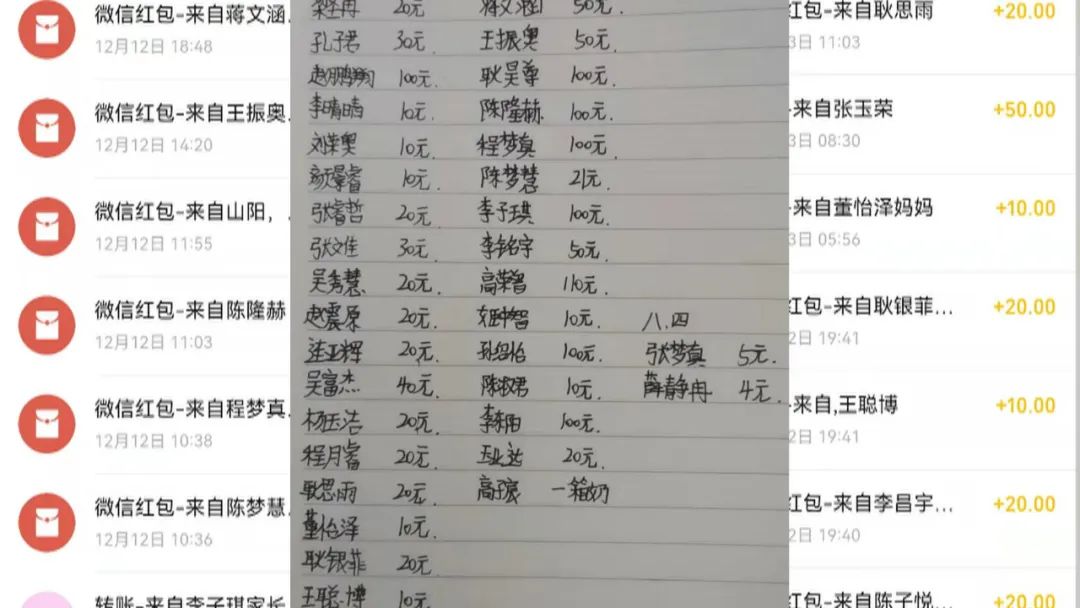 微信红包-来自蒋文涵
12月12日 18:48
微信红包-来自王振奥.
12月12日 14:20
微信红包-来自山阳，.
12月12日 11:55
微信红包-来自陈隆赫
12月12日 11:03
微信红包-来自程梦真.
12月12日 10:38
微信红包-来自陈梦慧.
12月12日 10:36
转账-来自李子琪家长
20元 蒋文涵 50元.
孔子君 30元 王振奥 50元.
赵鹏翔 100元. 耿昊尊 100元.
李晴晴 10元. 陈隆赫 100元.
刘荣奥 10元. 程梦真 100元.
颜景睿 10元. 陈梦慧 21元.
张睿哲 20元. 李子琪 100元.
张文佳 30元. 李铭宇 50元.
吴秀慧 20元. 高荣智 110元.
赵震原 20元. 10元. 八.四
汪亚辉 20元. 孙绍怡 100元. 张梦真 5元.
吴富杰 40元. 陈淑君 10元. 薛静冉 4元.
杨玉洁 20元. 100元.
程月睿 20元. 20元.
耿思雨 20元. 一箱奶
董怡泽 10元.
耿银菲 20元.
王聪博 10元.
红包-来自耿思雨 +20.00
3日 11:03
-来自张玉荣 +50.00
3日 08:30
-来自董怡泽妈妈 +10.00
3日 05:56
红包-来自耿银菲... +20.00
2日 19:41
-来自,王聪博 +10.00
2日 19:41
红包-来自李昌宇... +20.00
2日 19:40
红包-来自陈子悦... +20.00